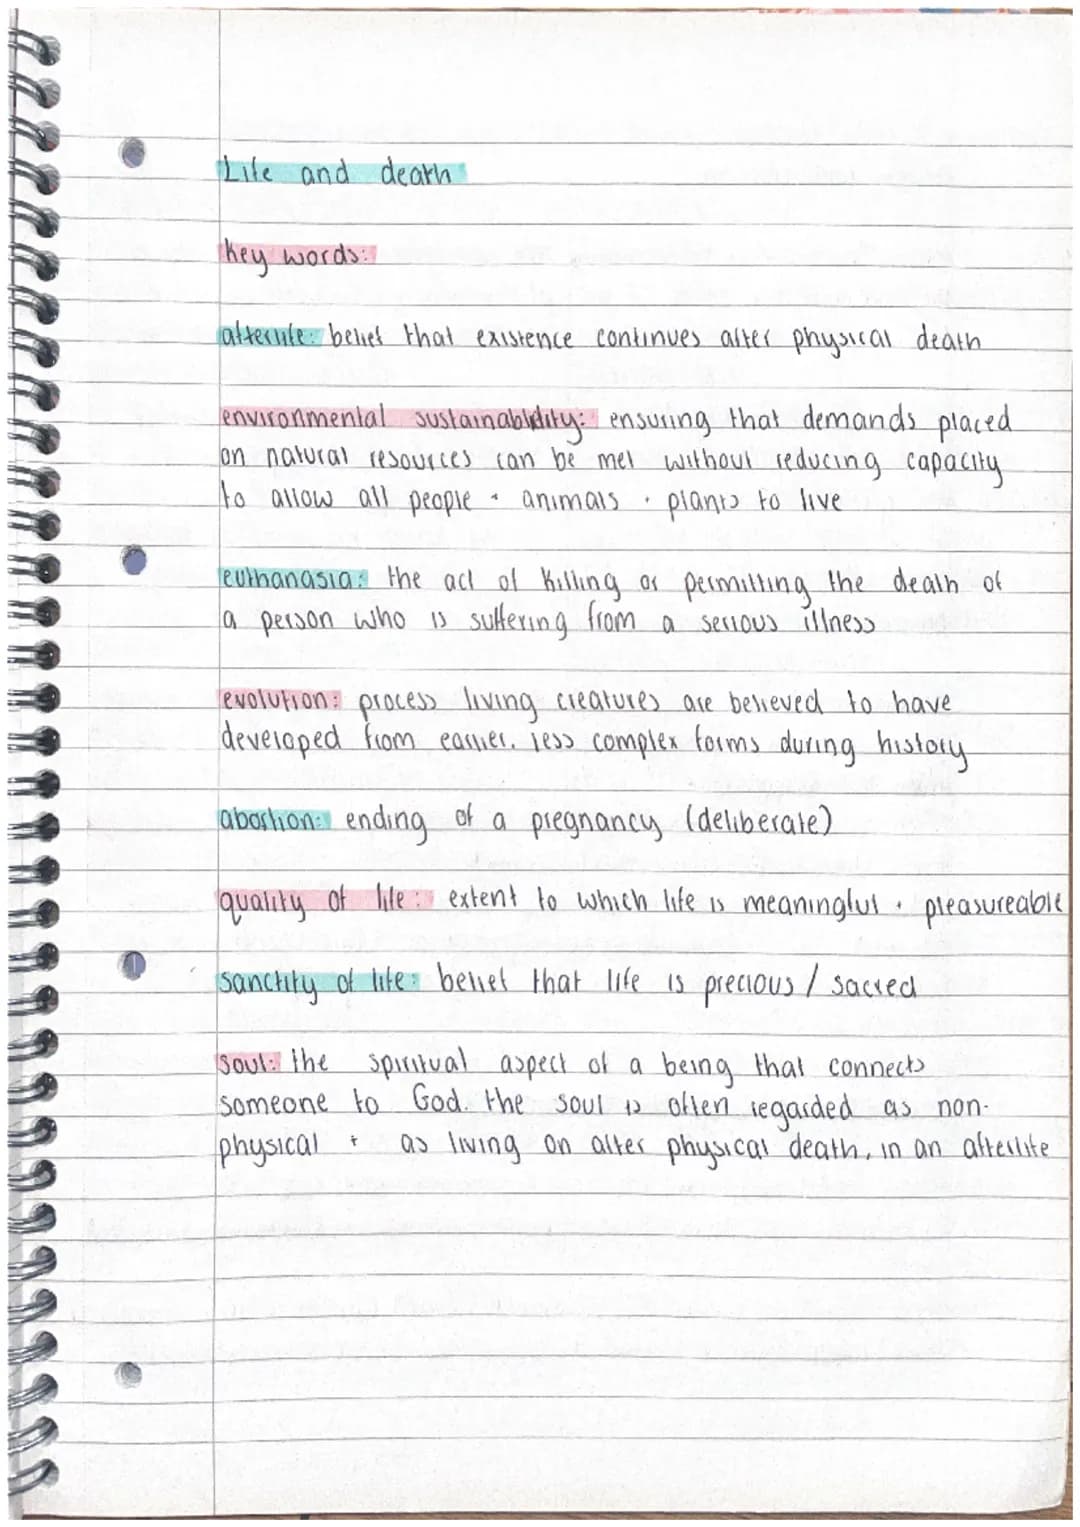 Life and death
key words:
afterlife: belief that existence continues after physical death
environmental sustainability: ensuring that demands placed
on natural resources can be met without reducing capacity
to allow all people + animals + plants to live
euthanasia: the act of killing or permitting the death of
a person who is suffering from a serious illness
evolution: process living creatures are believed to have
developed from earlier, less complex forms during history
abortion: ending of a pregnancy (deliberate)
quality of life: extent to which life is meaningful + pleasureable
sanctity of life: belief that life is precious / sacred
soul: the spiritual aspect of a being that connects
someone to God. the soul is often regarded as non-
physical + as living on after physical death, in an afterlife